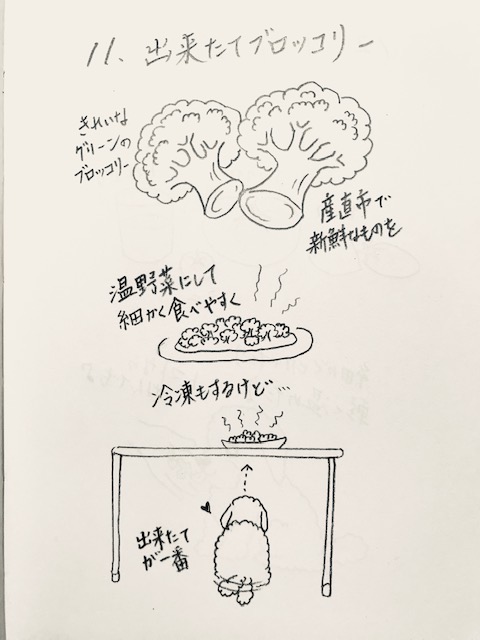 11、出来たてブロッコリー
きれいな
グリーンの
ブロッコリー
産直市で
新鮮なものを
温野菜にして
細かく食べやすく
冷凍もするけど…
出来たて
が一番